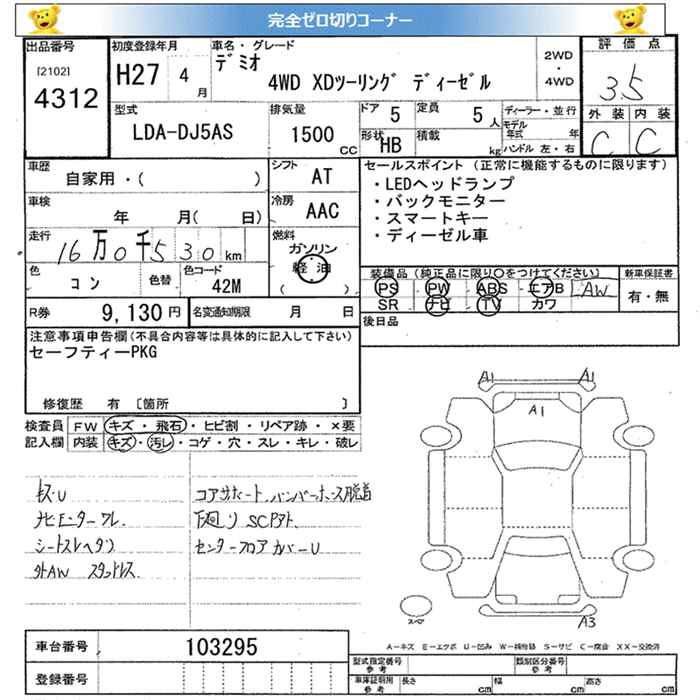 完全ゼロ切りコーナー
出品番号
[2102]
4312
初度登録年月
H27 4月
車名・グレード
デミオ
4WD XDツーリング ディーゼル
2WD
・
4WD
評価点
3.5
型式
LDA-DJ5AS
排気量
1500 CC
ドア 5
定員 5人
形状 HB
積載 kg
ディーラー・並行
モデル年式 年
ハンドル 左・右
外装 内装
C C
車歴
自家用・( )
シフト
AT
車検
年 月( 日)
冷房
AAC
走行
16万0千530km
燃料
ガソリン
軽油
( )
色
コン
色替
色コード
42M
R券 9,130円
名変通知期限 月 日
セールスポイント(正常に機能するものに限ります)
・LEDヘッドランプ
・バックモニター
・スマートキー
・ディーゼル車
装備品(純正品に限り○をつけてください)
PS PW ABS エアB AW
SR ナビ TV カワ
新車保証書
有・無
後日品
注意事項申告欄(不具合内容等は具体的に記入して下さい)
セーフティーPKG
修復歴 有 〔箇所 〕
検査員記入欄
FW キズ・飛石・ヒビ割・リペア跡・×要
内装 キズ・汚レ・コゲ・穴・スレ・キレ・破レ
キズU
ナビモニターワレ
シートスレヘタリ
外AW スタットレス
コアサポート、バンパーホース脱着
下廻りSCアト
センターフロアカバーU
A1 A1
A1
スペア
A3
A-キズ E-エクボ U-凹み W-補修跡 S-サビ C-腐食 XX-交換済
車台番号 103295
登録番号
型式指定番号 参考
類別区分番号 参考
車庫証明用 参考
長さ cm
幅 cm
高さ cm